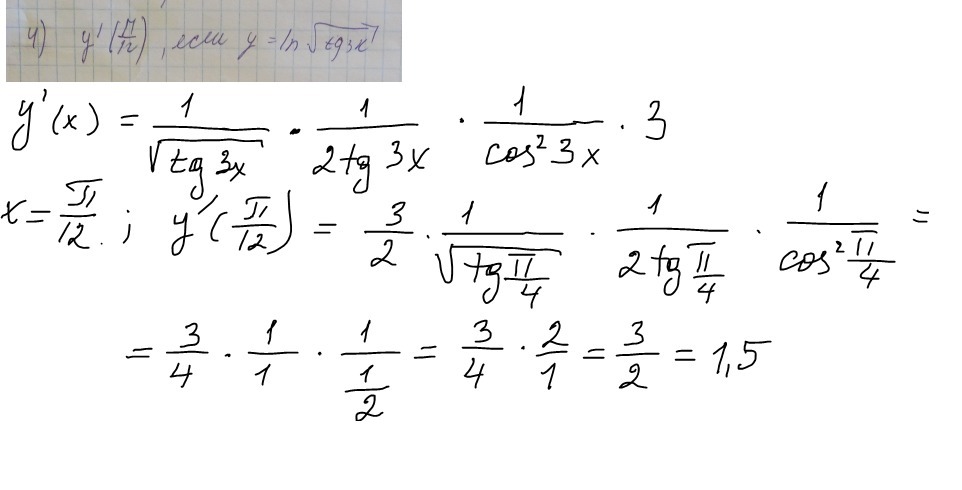 4) y'(π/12), если y = ln √(tg3x)
y'(x) = 1/√(tg 3x) · 1/(2tg 3x) · 1/(cos² 3x) · 3
x = π/12. ; y'(π/12) = 3/2 · 1/√(tg π/4) · 1/(2tg π/4) · 1/(cos² π/4) =
= 3/4 · 1/1 · 1/(1/2) = 3/4 · 2/1 = 3/2 = 1,5